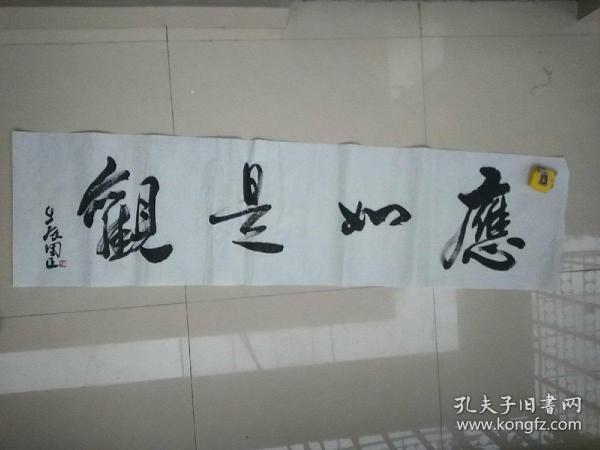 應如是觀
孔夫子旧书网
www.kongfz.com